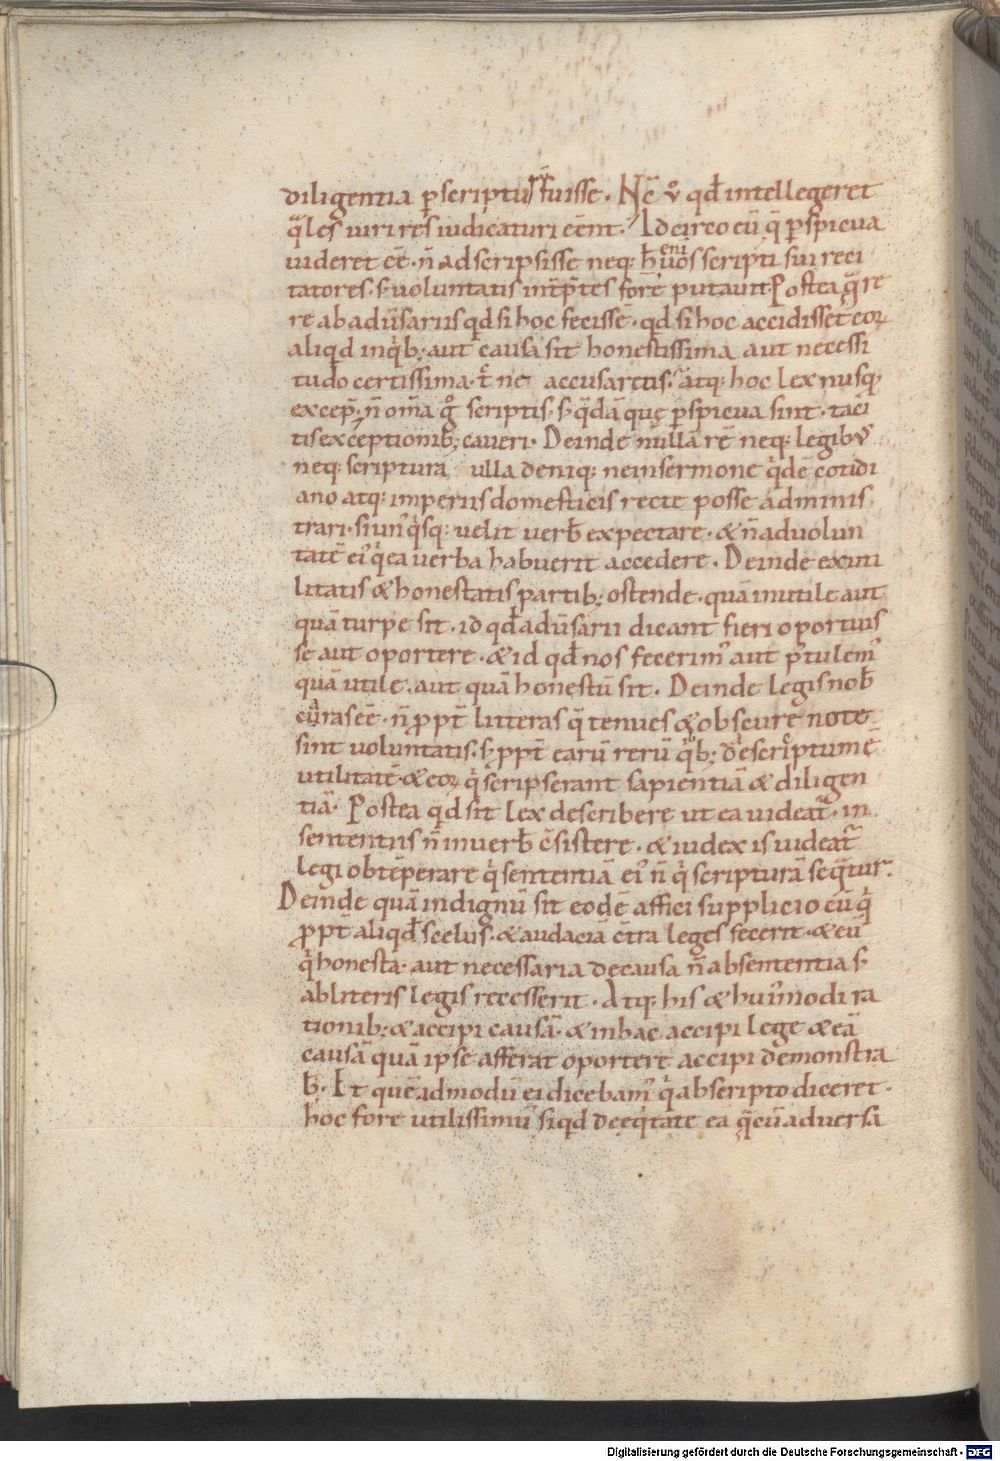 diligentia p̱scriptu͂ fuisse. Nc̄ v̊ qd̄ intellegeret
q̄les uiri res̄ iudicaturi eēnt. Idcirco eū q̄ p̱spicua
uideret eē. n̄ adscripsisse neq; h̄ eni uos scripti sui reci
tatores. s; uoluntatis int̄p̄tes fore putauit. Postea quȩre
re ab adūsariis qd si hoc fecissē. qd si hoc accidisset eoꝝ
aliqd inqͥb; aut causa sit honestissima aut necessi
tudo certissima. t̄ ne accusaretis. atq; hoc lex nusq̄
excep̄. n̄ om̄a g̊ scriptis. s; q̄dā quę p̱spicua sint. taci
tis exceptionib; caueri. Deinde nullā rē neq; legibꝰ
neq; scriptura ulla deniq; ne in sermone qͥdē cotidi
ano atq; imperiis domesticis recte posse adminis
trari. si unꝰqͥsq; uelit uerb̄ expectare. & n̄ ad uolun
tatē eiꝰ qͥ ea uerba habuerit accedere. Deinde ex uti
litatis & honestatis partib; ostende. quā inutile aut
quā turpe sit. id qd̄ adūsarii dicant fieri oportuis
se aut oportere. & id qd̄ nos fecerimꝰ aut p̄tulemꝰ
quā utile. aut quā honestū sit. Deinde legis nob̄
cͣras eē. n̄ p̱pt̄ litteras q̄ tenues & obscure note
sint uoluntatis. s; p̱pt̄ earū rerū qͥb; de scriptum ē
utilitatē. & eoꝝ qͥ scripserant sapientiā & diligen
tiā. Postea qd sit lex describere ut ea uideat᷑. in
sententiis n̄ in uerb̄ c̄sistere. & iudex is uideat᷑
legi obtēperare qͥ sententiā eiꝰ n̄ qͥ scripturā seq̄tur.
Deinde quā indignū sit eodē affici supplicio eū qͥ
p̱pt̄ aliqd̄ scelus. & audacia c̄tra leges fecerit. & eū
qͥ honesta. aut necessaria de causa n̄ ab sententia s;
ab literis legis recesserit. Atq; his & huiꝰmodi ra
tionib; & accipi causā. & in hac accipi lege & eā
causā quā ipse afferat oportere accipi demonstra
b̄. Et quēadmodū ei dicebamꝰ qͥ ab scripto diceret.
hoc fore utilissimū si qd de ęqͥtate ea q̄ cū aduersa
Digitalisierung gefördert durch die Deutsche Forschungsgemeinschaft - DFG